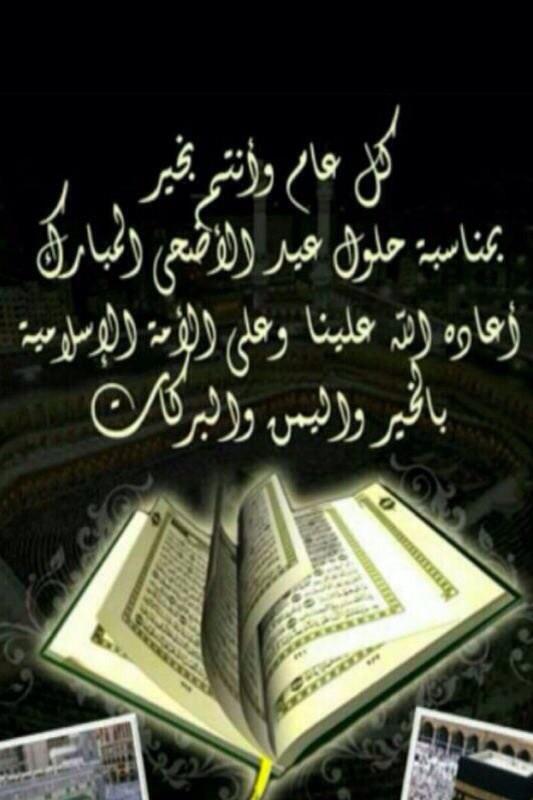 كل عام وأنتم بخير
بمناسبة حلول عيد الأضحى المبارك
أعاده الله علينا وعلى الأمة الإسلامية
بالخير واليمن والبركات